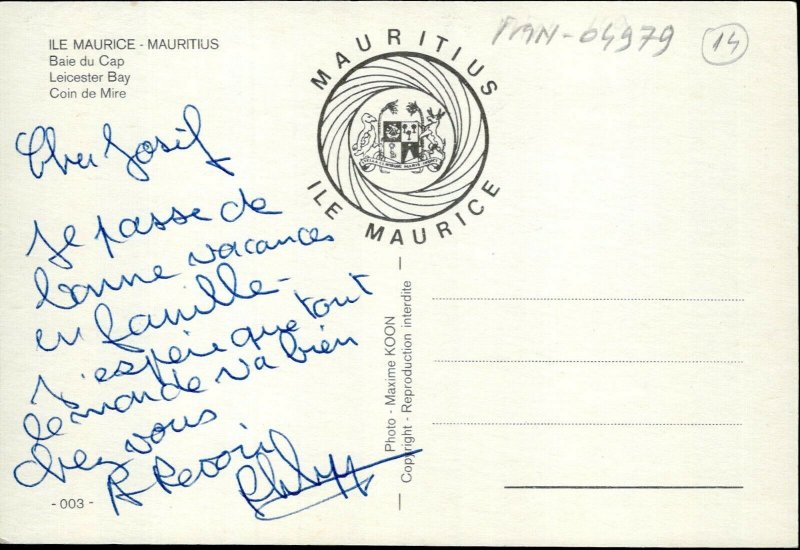 ILE MAURICE - MAURITIUS
Baie du Cap
Leicester Bay
Coin de Mire
MAURITIUS
ILE MAURICE
14
Cher Josif
Je passe de
bonne vacances
en famille -
J'espère que tout
le monde va bien
chez vous
A Revoir
Philipp
- 003 -
Photo - Maxime KOON
Copyright - Reproduction interdite